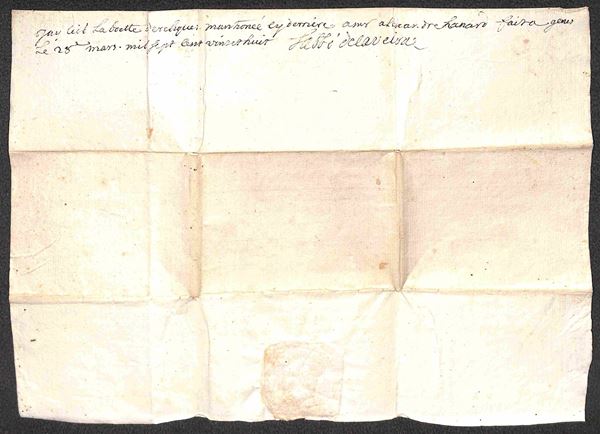 Jay leit la boette de reliques mantionée cy derrière a mr alexandre hanard fait a genes
Le 28e mars. mil sept cent vinct huit L'abbé de la veine